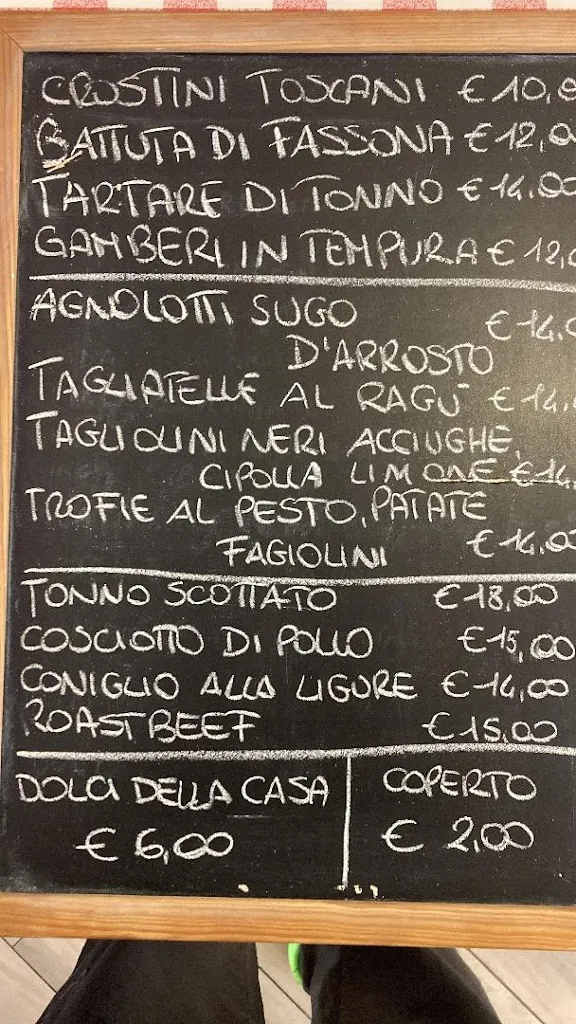 CROSTINI TOSCANI €10,0
BATTUTA DI FASSONA €12,00
TARTARE DI TONNO €14.00
GAMBERI IN TEMPURA €12,0
AGNOLOTTI SUGO
D'ARROSTO €14.0
TAGLIATELLE AL RAGÙ €14.
TAGLIOLINI NERI ACCIUGHE,
CIPOLLA LIMONE €14.
TROFIE AL PESTO, PATATE
FAGIOLINI €14.00
TONNO SCOTTATO €18,00
COSCIOTTO DI POLLO €15,00
CONIGLIO ALLA LIGURE €14,00
ROASTBEEF €15.00
DOLCI DELLA CASA
€ 6,00
COPERTO
€ 2,00